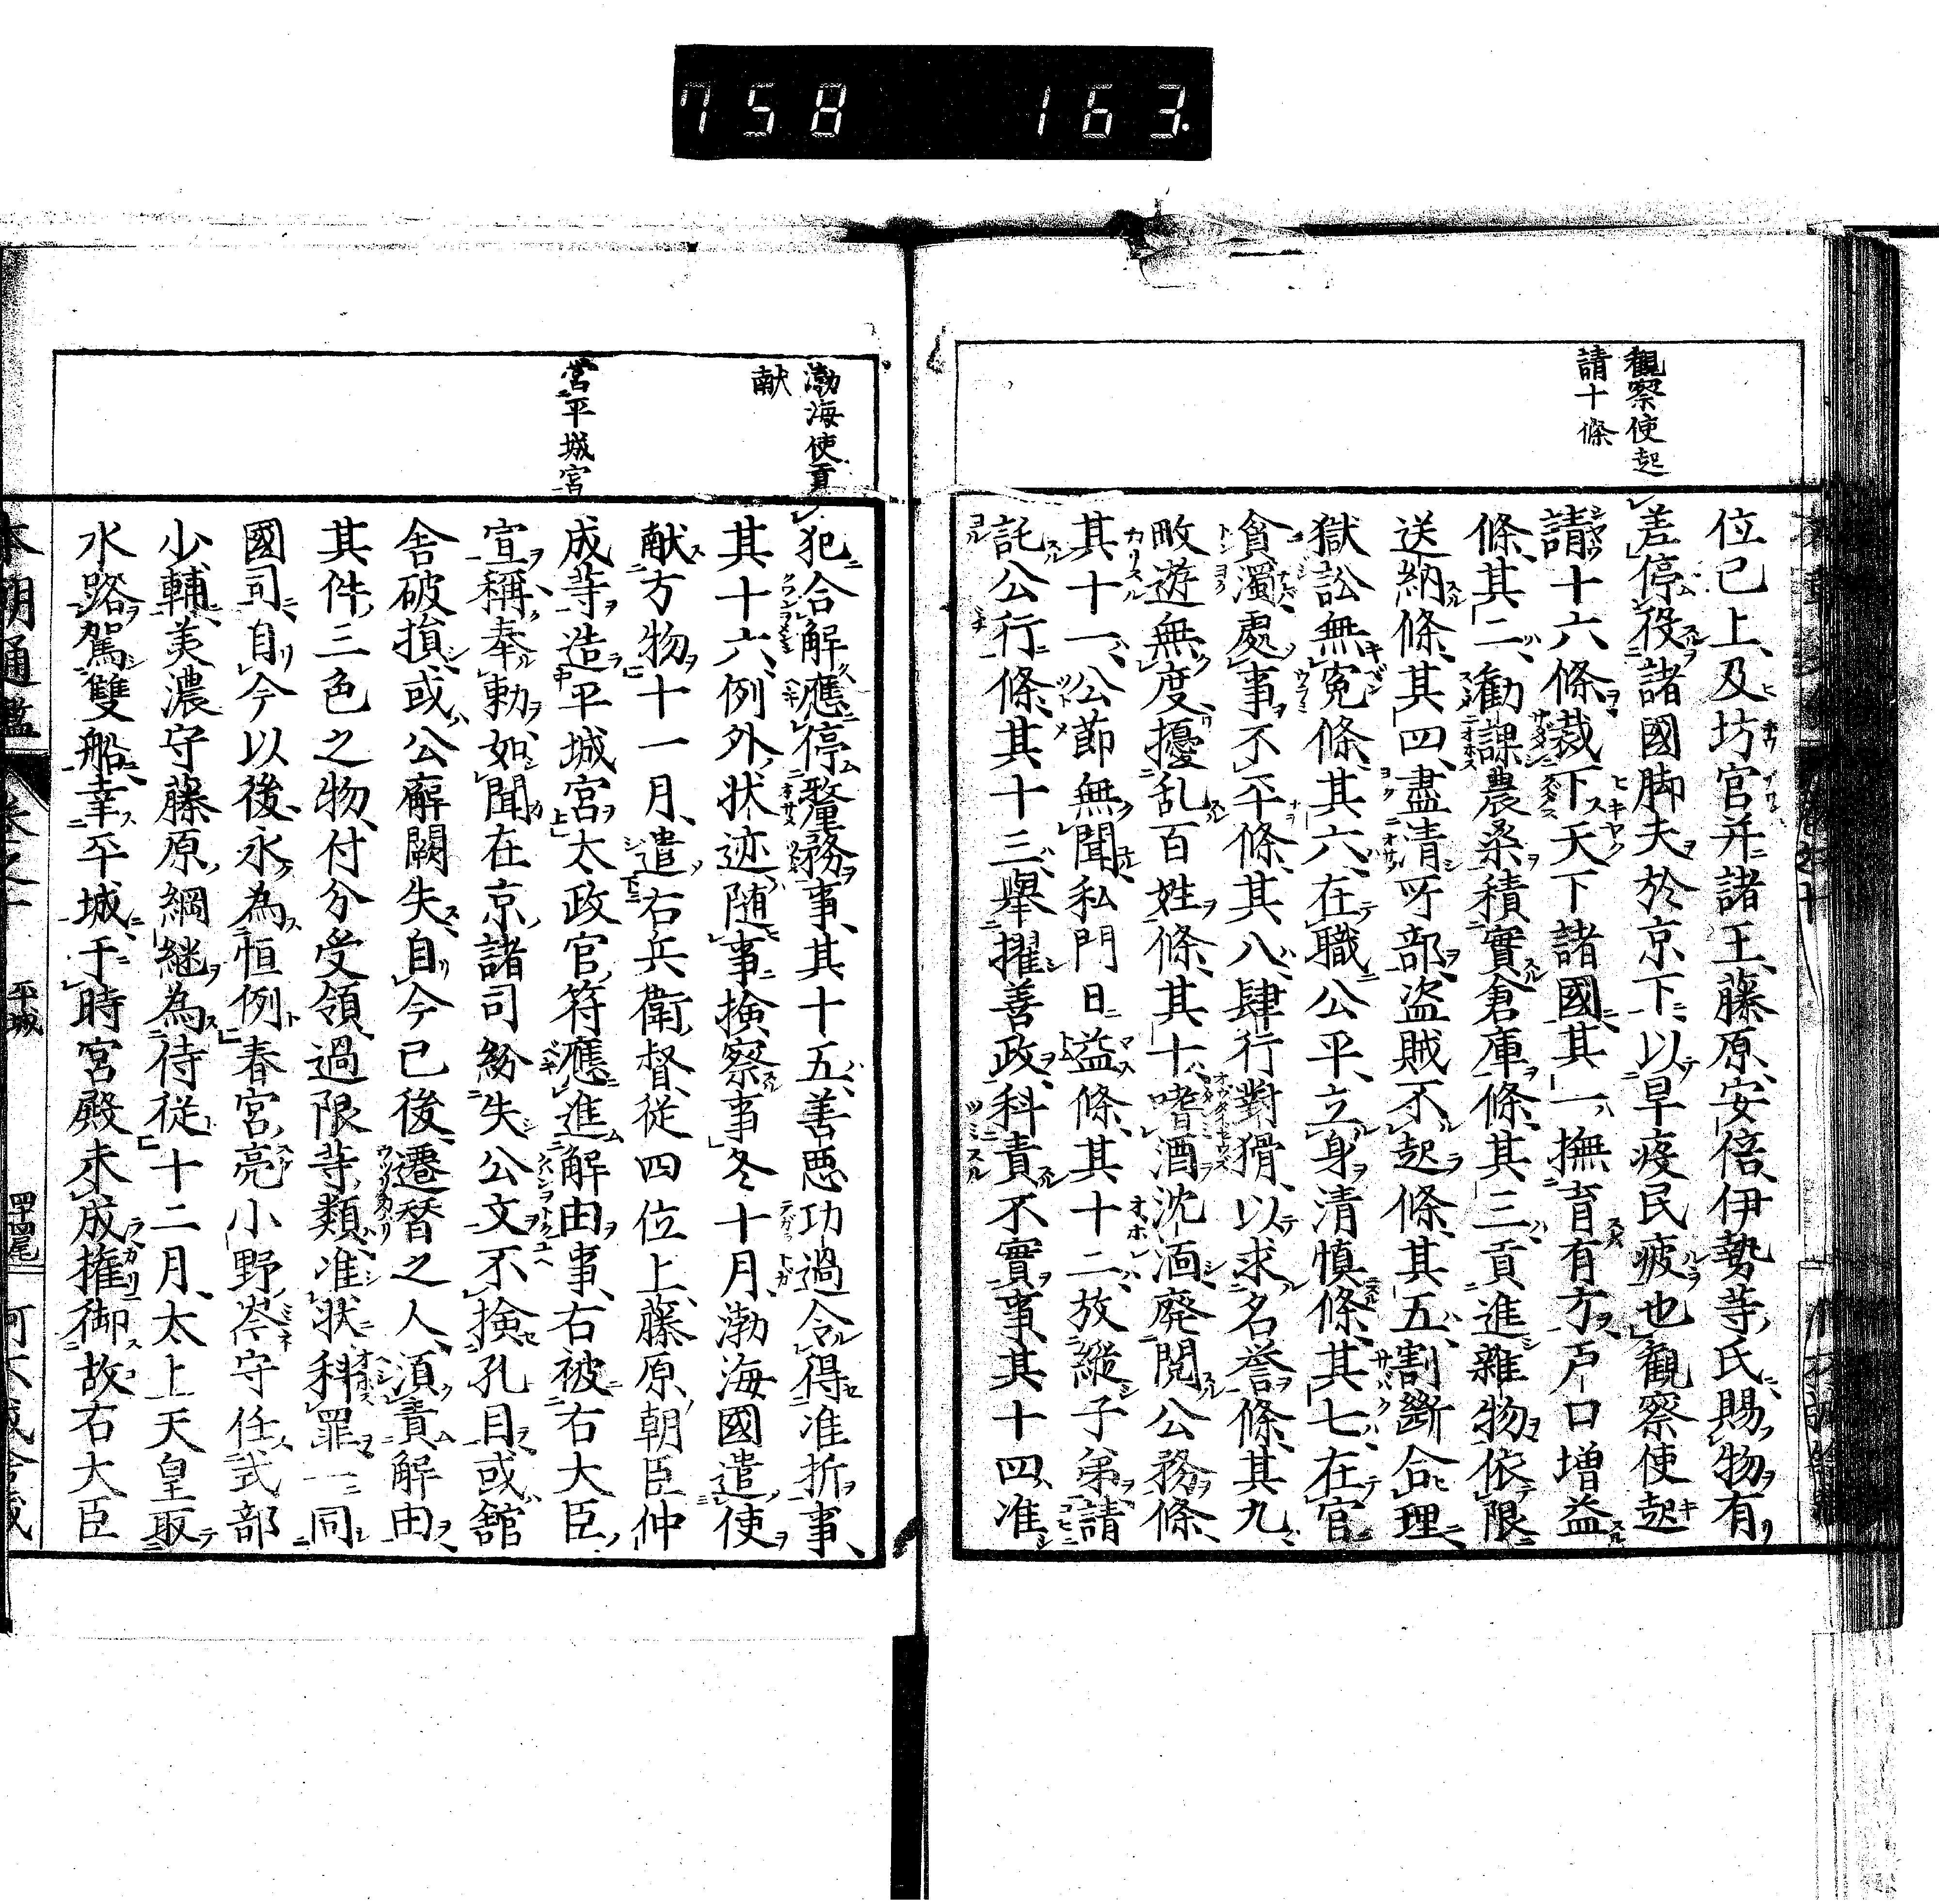 758 163.
觀察使起
請十條
位已上、及坊官并諸王、藤原、安倍、伊勢等氏賜物有
差停役諸國脚夫於京下、以早疫民疲也觀察使起
請十六條裁下天下諸國其一撫育有方戸口増益
條、其二、勸課農桑積實倉庫條、其三、貢進雜物依限
送納條、其四、盡清所部、盗賊不起條、其五、割斷合理、
獄訟無寃條、其六、在職公平、立身清慎條、其七、在官
貪濁、處事不平條、其八、肆行對猾、以求名誉條、其九
畋遊無度、擾乱百姓條、其十、嗜酒沈湎、廃闕公務條、
其十一、公節無聞、私門日益條、其十二、放縱子弟、請
託公行條、其十三、舉擢善政、科責不實事、其十四、准
犯合解應停釐務事、其十五、善悪功過令得准折事、
其十六、例外状迹、随事検察事冬十月、渤海國遣使
献方物十一月、遣右兵衛督、従四位上、藤原朝臣仲
成等造平城宮太政官符應進解由事、右被右大臣
宣稱、奉勅、如聞在京諸司紛失公文不検孔目或舘
舎破損、或公廨闕失、自今已後、遷替之人、湏責解由
其件三色之物、付分受領、過限等類、准状科罪一同
國司、自今以後、永為恒例春宮亮小野岑守任式部
少輔、美濃守藤原綱継為侍従十二月、太上天皇取
水路、駕雙船、幸平城、于時宮殿未成、権御故右大臣
渤海使貢
献
営平城宮
本朝通鑑 平城